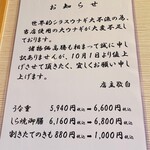 お知らせ
世界的シラスウナギ大不漁の為、
当店使用の大ウナギが大変不足し
ております。
諸物価高騰も相まって誠に申し
訳ありませんが、10月1日より値上
げさせて頂きたく、宜しくお願い申し
上げます。
店主敬白
うな重 5,940円→6,600円
しら焼御膳 6,160円→6,800円
割きたてのきも 880円→1,000円